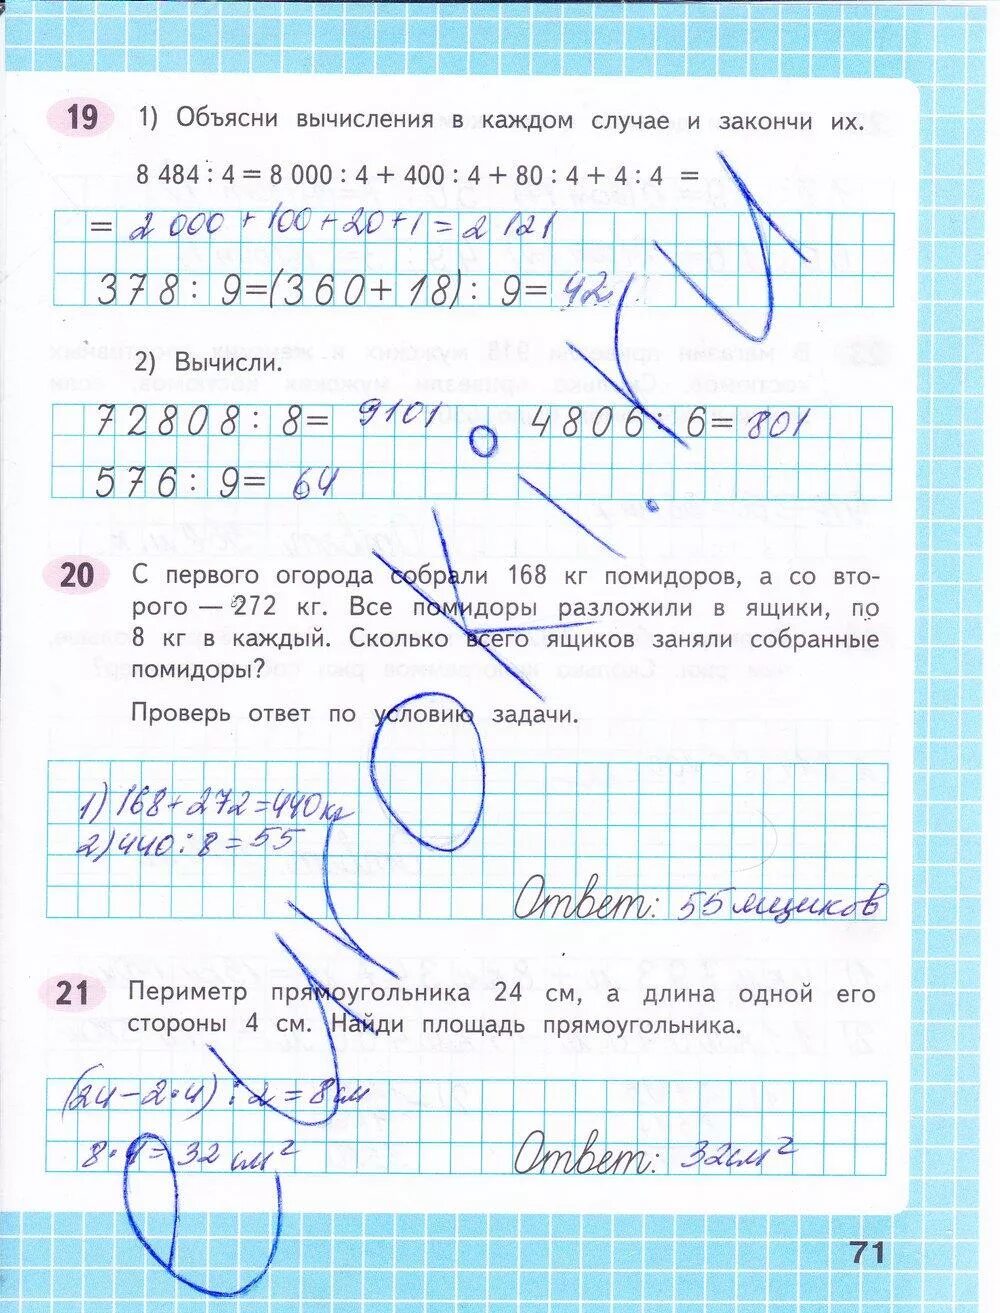 19 1) Объясни вычисления в каждом случае и закончи их.
8 484 : 4 = 8 000 : 4 + 400 : 4 + 80 : 4 + 4 : 4 =
= 2 000 + 100 + 20 + 1 = 2 121
378 : 9 = (360 + 18) : 9 = 42
2) Вычисли.
72808 : 8 = 9101 4806 : 6 = 801
576 : 9 = 64
20 С первого огорода собрали 168 кг помидоров, а со вто-
рого — 272 кг. Все помидоры разложили в ящики, по
8 кг в каждый. Сколько всего ящиков заняли собранные
помидоры?
Проверь ответ по условию задачи.
1) 168 + 272 = 440 кг
2) 440 : 8 = 55
Ответ: 55 ящиков
21 Периметр прямоугольника 24 см, а длина одной его
стороны 4 см. Найди площадь прямоугольника.
(24 – 2 · 4) : 2 = 8 см
8 · 4 = 32 см²
Ответ: 32 см²
71